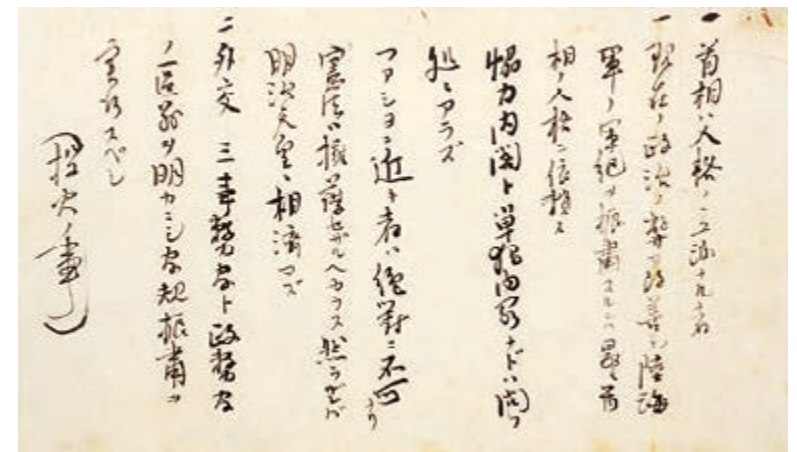 一 首相ハ人格ノ立派ナル者
一 現在ノ政治ノ弊ヲ改善シ陸海
軍ノ軍紀ヲ振粛スルハ最モ首
相ノ人格ニ依頼ス
協力内閣ト単独内閣ナドハ問フ
処ニアラズ
ファショニ近キ者ハ絶対ニ不可ナリ
憲法ハ擁護セザルベカラズ然ラザレバ
明治天皇ニ相済マズ
二外交
ノ区別ヲ明カニシ官紀振粛ヲ
実行スベシ